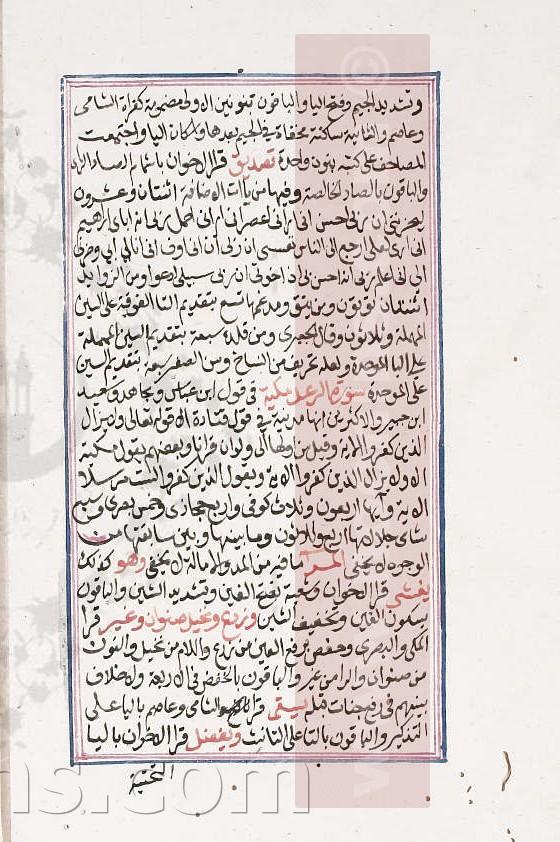 وتشديد الجيم وفتح اليا والباقون بنونين الاولى مضمومة كقراة الشامى
وعاصم والثانية ساكنة مخفاة في الجيم بعدها واسكان اليا واجتمعت
المصاحف على كتبه بنون واحدة تصديق قرا الاخوان باشمام الصاد الزاى
والباقون بالصاد الخالصة وفيها من يآات الاضافة اثنتان وعشرون
ليحزنني ان ربي احسن اني اراني اعصر اني اراني احمل ربي انه اباى ابراهيم
اني ارى لعلى ارجع الى الناس نفسي ان ربي ان اني اوف اني ابي وحزني
الى اني اعلم ربي انه احسن بي اذ اخوتي ان ربي سبيلى ادعوا ومن الزوايد
اثنتان تؤتون ومن يتق ومدغمها تسع بتقديم التا الفوقية على السين
المهملة وثلاثون وقال الجعبرى ومن قلده سبعة بتقديم السين المهملة
على البا الموحدة ولعله تحريف من النساخ ومن الصغير سبعة بتقديم السين
على الموحدة سورة الرعد مكية في قول ابن عباس ومجاهد وسعيد
ابن جبير والاكثرين انها مدنية في قول قتادة الا قوله تعالى ولا يزال
الذين كفروا الاية وقيل من اولها الى ولو ان قرانا وبعضهم يقول مكية
الا ولا يزال الذين كفروا الاية ويقول الذين كفروا لست مرسلا
الاية وآيها اربعون وثلاث كوفى واربع حجازى وخمس بصرى وسبع
شامى جلالاتها اربع وثلاثون وما بينها وبين سابقتها من
الوجوه لا يخفى المر ما فيه من المد والامالة لا يخفى وهو كذلك
يغشى قرا الاخوان وشعبة بفتح الغين وتشديد الشين والباقون
بسكون الغين وتخفيف الشين وزرع ونخيل صنوان وغير قرا
المكى والبصرى وحفص برفع العين من زرع واللام من نخيل والنون
من صنوان والرا من غير والباقون بالخفض في الاربعة ولا خلاف
بينهم في رفع جنات قبله يسقى قرا الشامى وعاصم باليا على
التذكير والباقون بالتا على التانيث ويفضل قرا الاخوان باليا
التحتية
ns.com